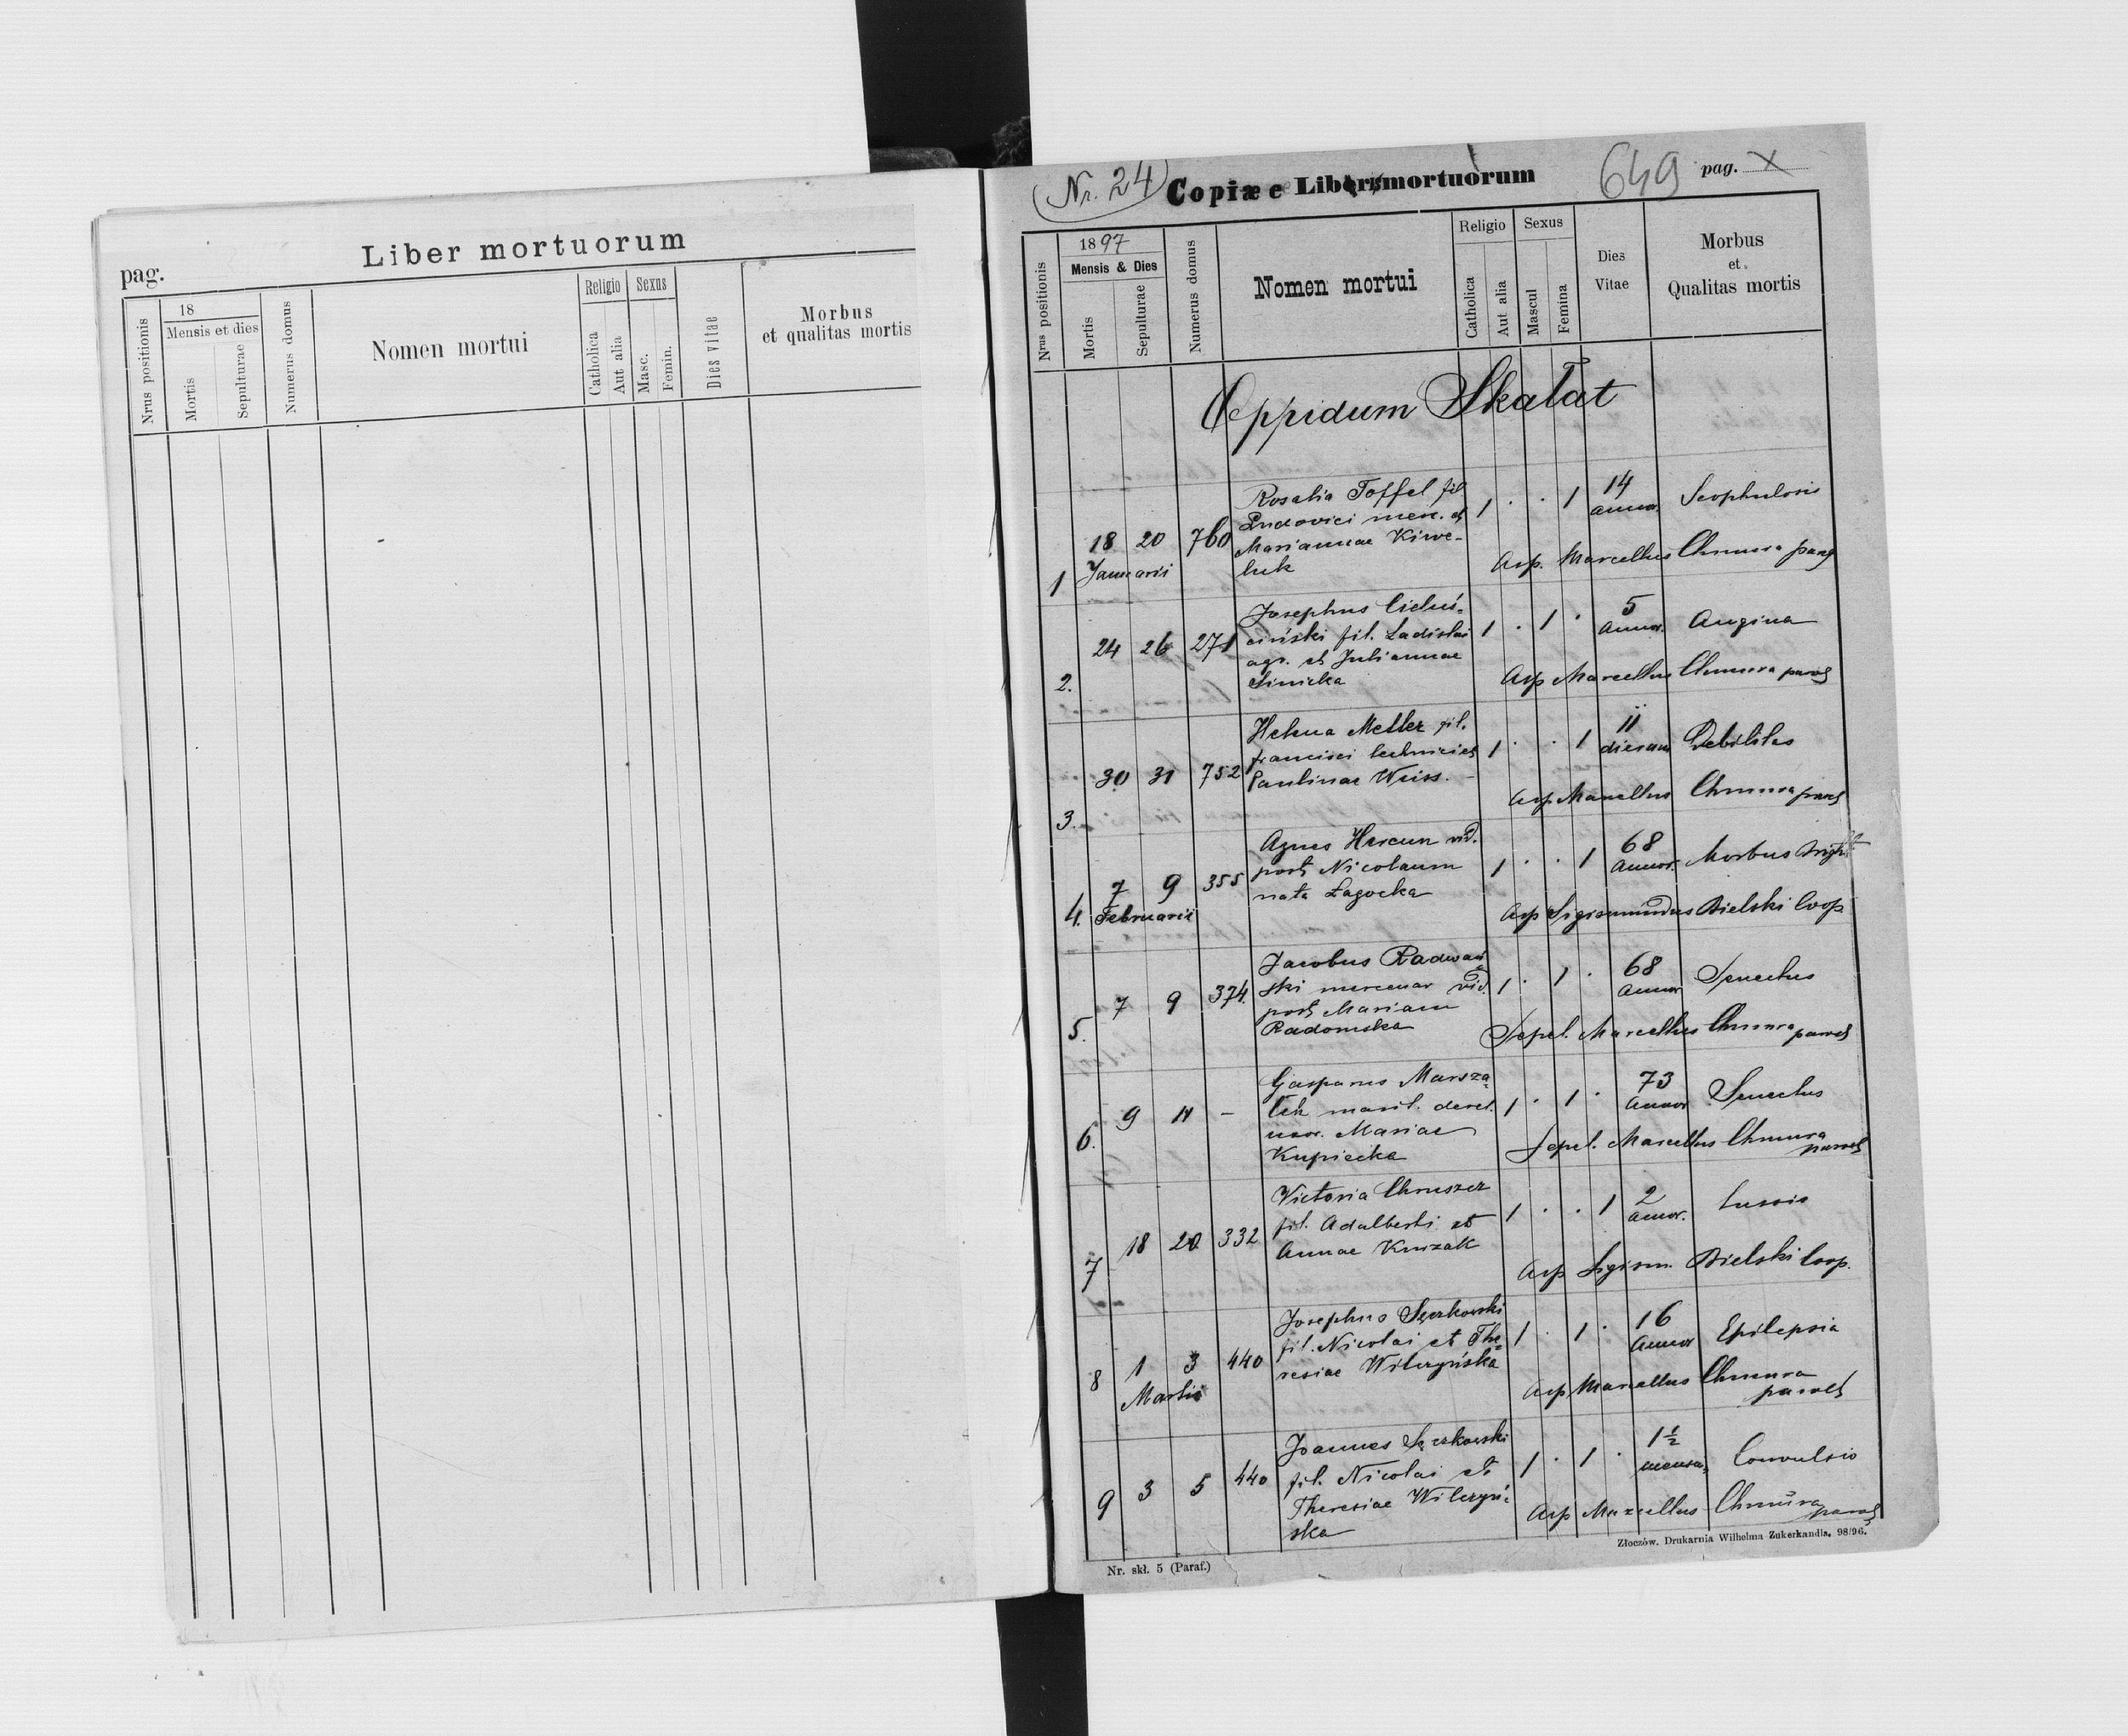 pag.
Liber mortuorum
Nrus positionis
18
Mensis et dies
Mortis
Sepulturae
Numerus domus
Nomen mortui
Religio
Catholica
Aut alia
Sexus
Masc.
Femin.
Dies vitae
Morbus
et qualitas mortis
Nr. 24
Copiæ Libri mortuorum
649
pag. X
Nrus positionis
1897
Mensis & Dies
Mortis
Sepulturae
Numerus domus
Nomen mortui
Religio
Catholica
Aut alia
Sexus
Mascul
Femina
Dies
Vitae
Morbus
et
Qualitas mortis
Oppidum Skałat
1 18 20 760 Rosalia Toffel fil 1 . . 1 14 Scophulosis
Januarii
Ludovici merc. et annor.
Mariannae Kiwe-
luk
Asp. Marcellus Chmura paroch
2. 24 26 271 Josephus Cieluś- 1 . 1 . 5 Angina
ciński fil. Ladislai annor.
agr. et Juliannae
Sinicka
Asp Marcellus Chmura paroch
3. 30 31 752 Helena Metler fil. 1 . . 1 11 Debilitas
francisci technici et dierum
Paulinae Weiss. -
Asp Marcellus Chmura paroch
4. 7 9 355 Agnes Harcun vid. 1 . . 1 68 Morbus Bright.
Februarii
post Nicolaum annor.
nata Łagocka
Asp Sigismundus Bielski Coop
5. 7 9 374. Jacobus Radwań 1 . 1 . 68 Senectus
ski mercenar vid. annor
post Mariam
Radomska
Sepel. Marcellus Chmura paroch
6. 9 11 - Gasparus Marsza 1 . 1 . 73 Senectus
łek marit. derel. annor
uxor. Mariae
Kupiecka
Sepel. Marcellus Chmura
paroch
7 18 20 332 Victoria Chruszcz 1 . . 1 2 tussis
fil. Adalberti et annor.
Annae Knizak
Asp Sigism. Bielski Coop.
8 1 3 440 Josephus Sęczkowski 1 . 1 . 16 Epilepsia
Martii
fil. Nicolai et The annor
resiae Wilczyńska
Asp Marcellus Chmura
paroch
9 3 5 440 Joannes Sęczkowski 1 . 1 . 1½ Convulsio
fil. Nicolai et mensu.
Theresiae Wilczyń
ska
Asp Marcellus Chmura paroch
Nr. skł. 5 (Paraf.)
Złoczów. Drukarnia Wilhelma Zukerkandla. 98/96.